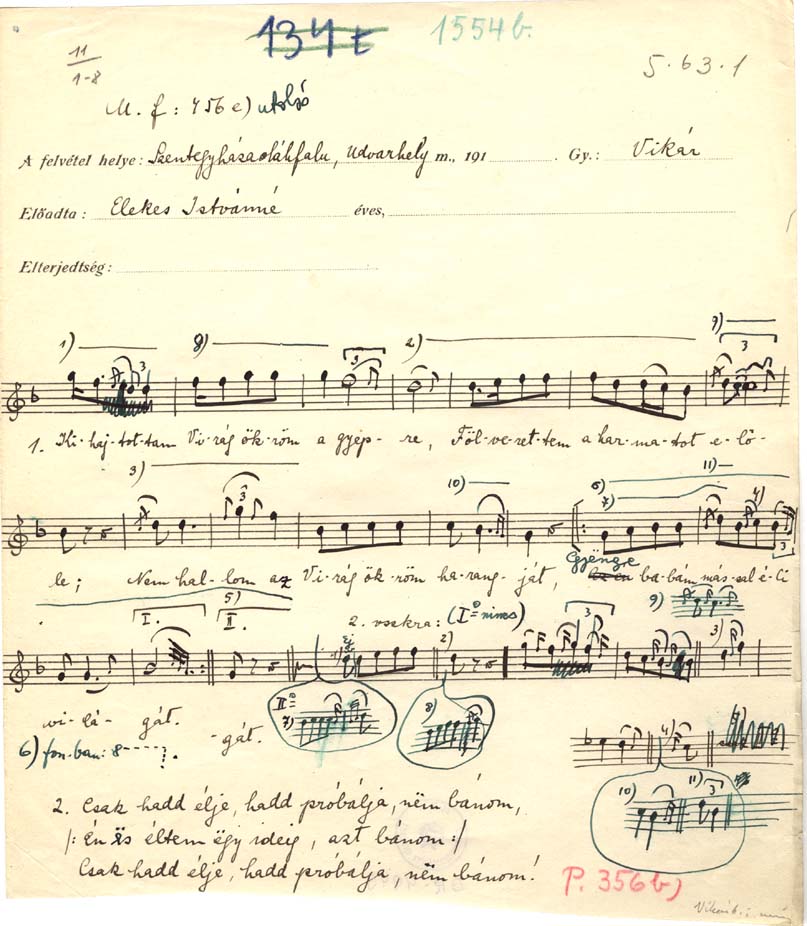 134 t 1554 b.
11
1-8
5.63.1
M. f : 456 e) utolsó
A felvétel helye: Szentegyházasoláhfalu, Udvarhely m., 191 . Gy.: Vikár
Előadta : Elekes Istvánné éves,
Elterjedtség:
1) 8) 3 2) 9) 3
3
1. Ki-haj-tot-tam Vi-rág ök-röm a gyep-re, Föl-ve-ret-tem a har-ma-tot e-lő-
3) 3 10) 6) 7) 11) 4) 3
le; Nem hal-lom az Vi-rág ök-röm ha-rang-ját, Gyënge ba-bám más-sal é-li
5) 9)
I. II. 2. vszakra: (I=nincs) 3
2) 3)
vi-lá-gát. -gát. II= 7) 8)
6) fon.ban: 8
4)
10) 11) 3
2. Csak hadd élje, hadd próbálja, nëm bánom,
/: Én is éltem ëgy ideig, azt bánom :/
Csak hadd élje, hadd próbálja, nëm bánom!
P. 356 b)